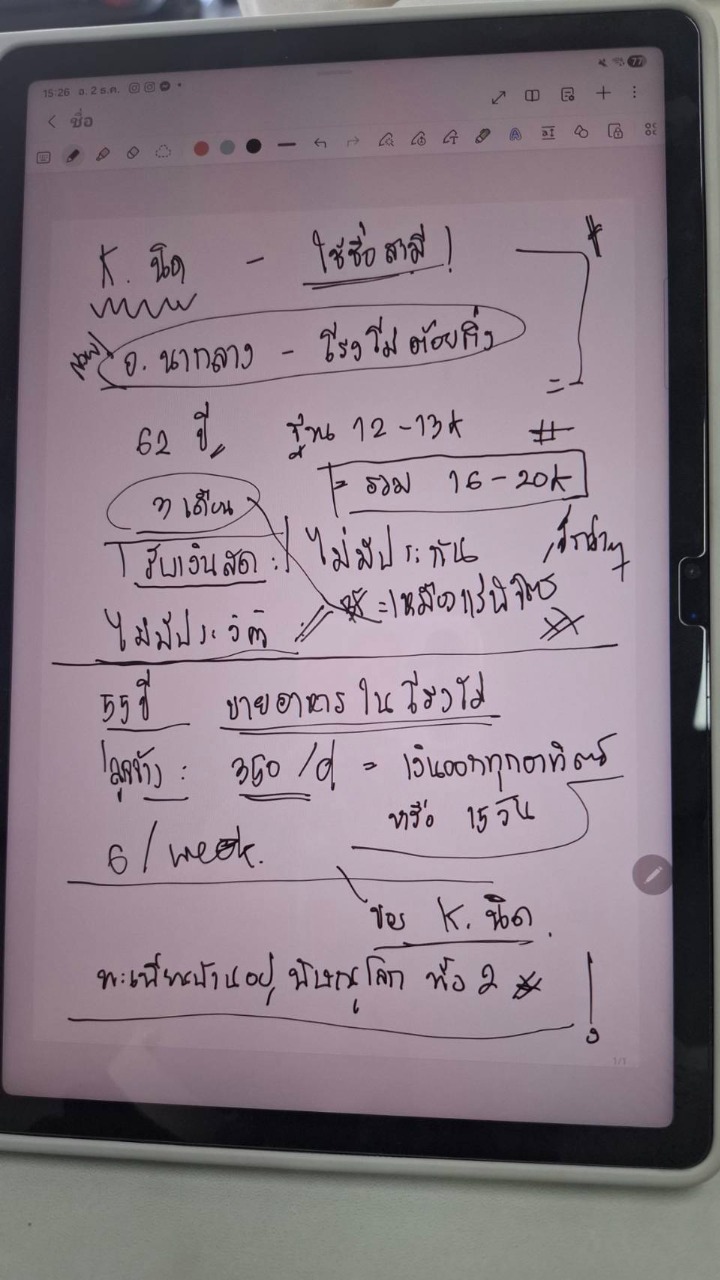 15:26 อ. 2 ธ.ค.
77
ชื่อ
K. นิด - ใช้ชื่อสามี !
อ. นากลาง - โรงโม่
62 ปี ฐาน 12 - 13k
= รวม 16 - 20k
3 เดือน
รับเงินสด : ไม่มีประกัน
ไม่มีประวัติ
55 ปี ขายอาหารในโรงโม่
ลูกจ้าง : 350 / d = เงินออกทุกอาทิตย์
หรือ 15 วัน
6 / week.
ของ K. นิด.
ทะเบียนบ้านอยู่ พิษณุโลก ทั้ง 2
1/1